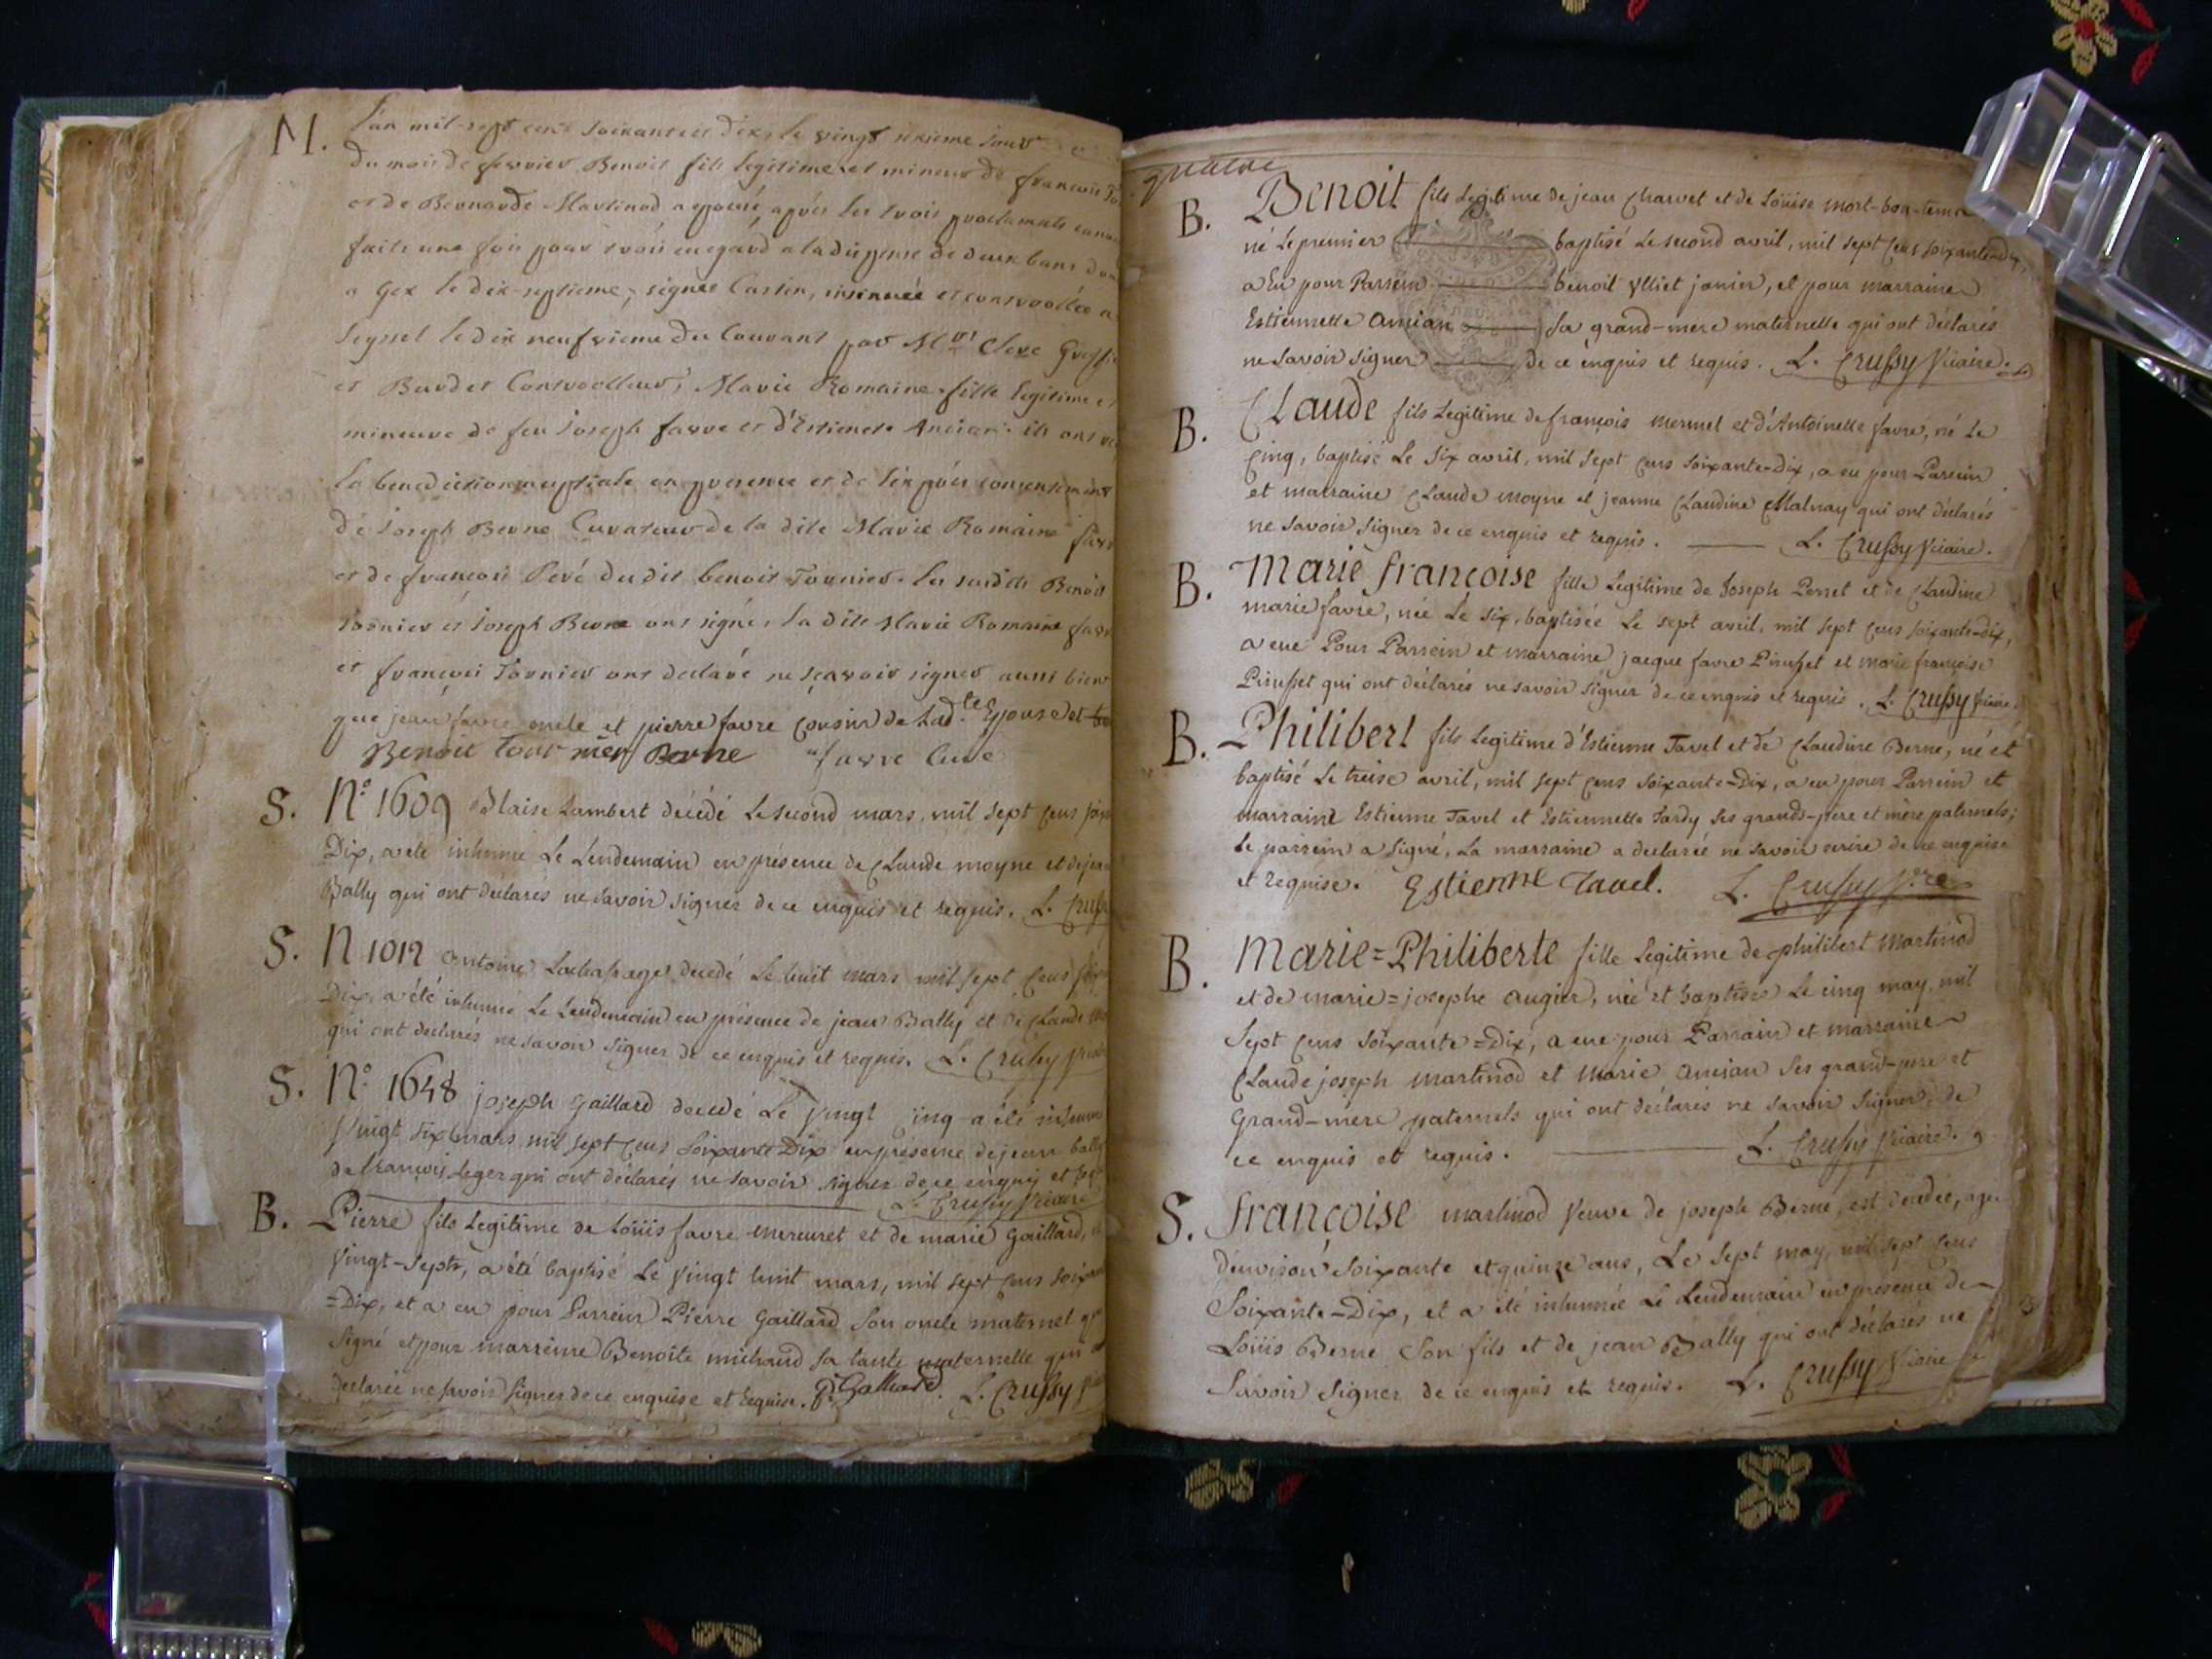 M. L'an mil-sept cent soixante et dix, le vingt sixieme jour
du mois de fevrier Benoit fils legitime et mineur de françois
et de Bernarde Martinod a epousé, après les trois proclamats
faite une fois pour trois en egard a la dispense de deux bans
a Gex le dix-septieme, signée Castin, insinuée et controollée a
Seyssel le dix neufvieme du Courant par Mrs Clerc
et Burdet Controolleur, Marie Romaine fille legitime et
mineure de feu Joseph favre et d'Estienette Ancian. ils ont
la benediction nuptiale en presence et de l'exprès consentement
de Joseph Berne Curateur de la dite Marie Romaine
et de françois Peré du dit benoit Tornier. Les susdits Benoit
Tornier et Joseph Berne ont signé, la dite Marie Romaine favre
et françois Tornier ont declaré ne sçavoir signer aussi bien
que jean favre oncle et pierre favre Cousin de Lad.te Epouse et
Benoit Tornier Berne favre Curé
S. N.o 1609 Blaise Lambert décédé Le second mars, mil sept cens
Dix, a eté inhumé Le Lendemain en présence de Claude moyne et de
Bally qui ont déclarés ne savoir signer de ce enquis et requis. L. Crussy
S. N 1012 Antoine décédé Le huit mars mil sept cens
Dix, a été inhumé Le Lendemain en présence de jean Bally et de Claude
qui ont declarés ne savoir signer de ce enquis et requis. L. Crussy
S. N.o 1648 joseph Gaillard decedé Le vingt cinq a été inhumé
vingt six mars mil sept cens soixante Dix en présence de jean bally
de françois Leger qui ont déclarés ne savoir signer de ce enquis et
L. Crussy Vicaire
B. Pierre fils Legitime de Loüis favre mercuret et de marie Gaillard,
vingt-sept, a été baptisé Le vingt huit mars, mil sept cens
=Dix, et a eu pour Parrein Pierre Gaillard son oncle maternel
signé et pour marreine Benoite michaud sa tante maternelle qui
declarée ne savoir signer de ce enquise et requise. P. Galliard. L. Crussy
quatre
B. Benoit fils Legitime de jean Charvet et de Loüise mort-bon-tems
né le premier baptisé Le second avril, mil sept cens soixante-dix,
a eu pour Parrein benoit ylliet janier, et pour marraine
Estiennette Ancian sa grand-mere maternelle qui ont déclarés
ne savoir signer de ce enquis et requis. L. Crussy Vicaire.
B. Claude fils Legitime de françois mermet et d'Antoinette favre, né Le
cinq, baptisé Le six avril, mil sept cens soixante-dix, a eu pour Parrein
et marraine Claude moyne et jeanne Claudine Malnay qui ont déclarés
ne savoir signer de ce enquis et requis. L. Crussy Vicaire.
B. Marie françoise fille Legitime de Joseph Perret et de Claudine
marie favre, née Le six, baptisée Le sept avril, mil sept cens soixante-dix,
a eue Pour Parrein et marraine jacque favre Pirusset et marie françoise
Pirusset qui ont déclarés ne savoir signer de ce enquis et requis. L. Crussy Vicaire.
B. Philibert fils Legitime d'Estienne Tavel et de Claudine Berne, né et
baptisé Le treise avril, mil sept cens soixante=Dix, a eu pour Parrein et
marraine Estienne Tavel et Estiennette Tardy ses grands-pere et mère paternels;
le parrein a signé, La marraine a declarée ne savoir ecrire de ce enquise
et requise. Estienne Tavel. L. Crussy V.re
B. Marie=Philiberte fille Legitime de philibert Martinod
et de marie=josephe augier, née et baptisée Le cinq may, mil
sept cens soixante=Dix, a eue pour Parrain et marraine
Claude joseph martinod et marie Ancian ses grand-pere et
Grand-mère paternels qui ont déclarés ne savoir signer, de
ce enquis et requis. L. Crussy Vicaire.
S. françoise martinod veuve de joseph Berne, est décedée, agée
d'environ soixante et quinze ans, Le sept may, mil sept cens
soixante=Dix, et a été inhumée Le Lendemain en présence de
Loüis Berne son fils et de jean Bally qui ont déclarés ne
savoir signer de ce enquis et requis. L. Crussy Vicaire